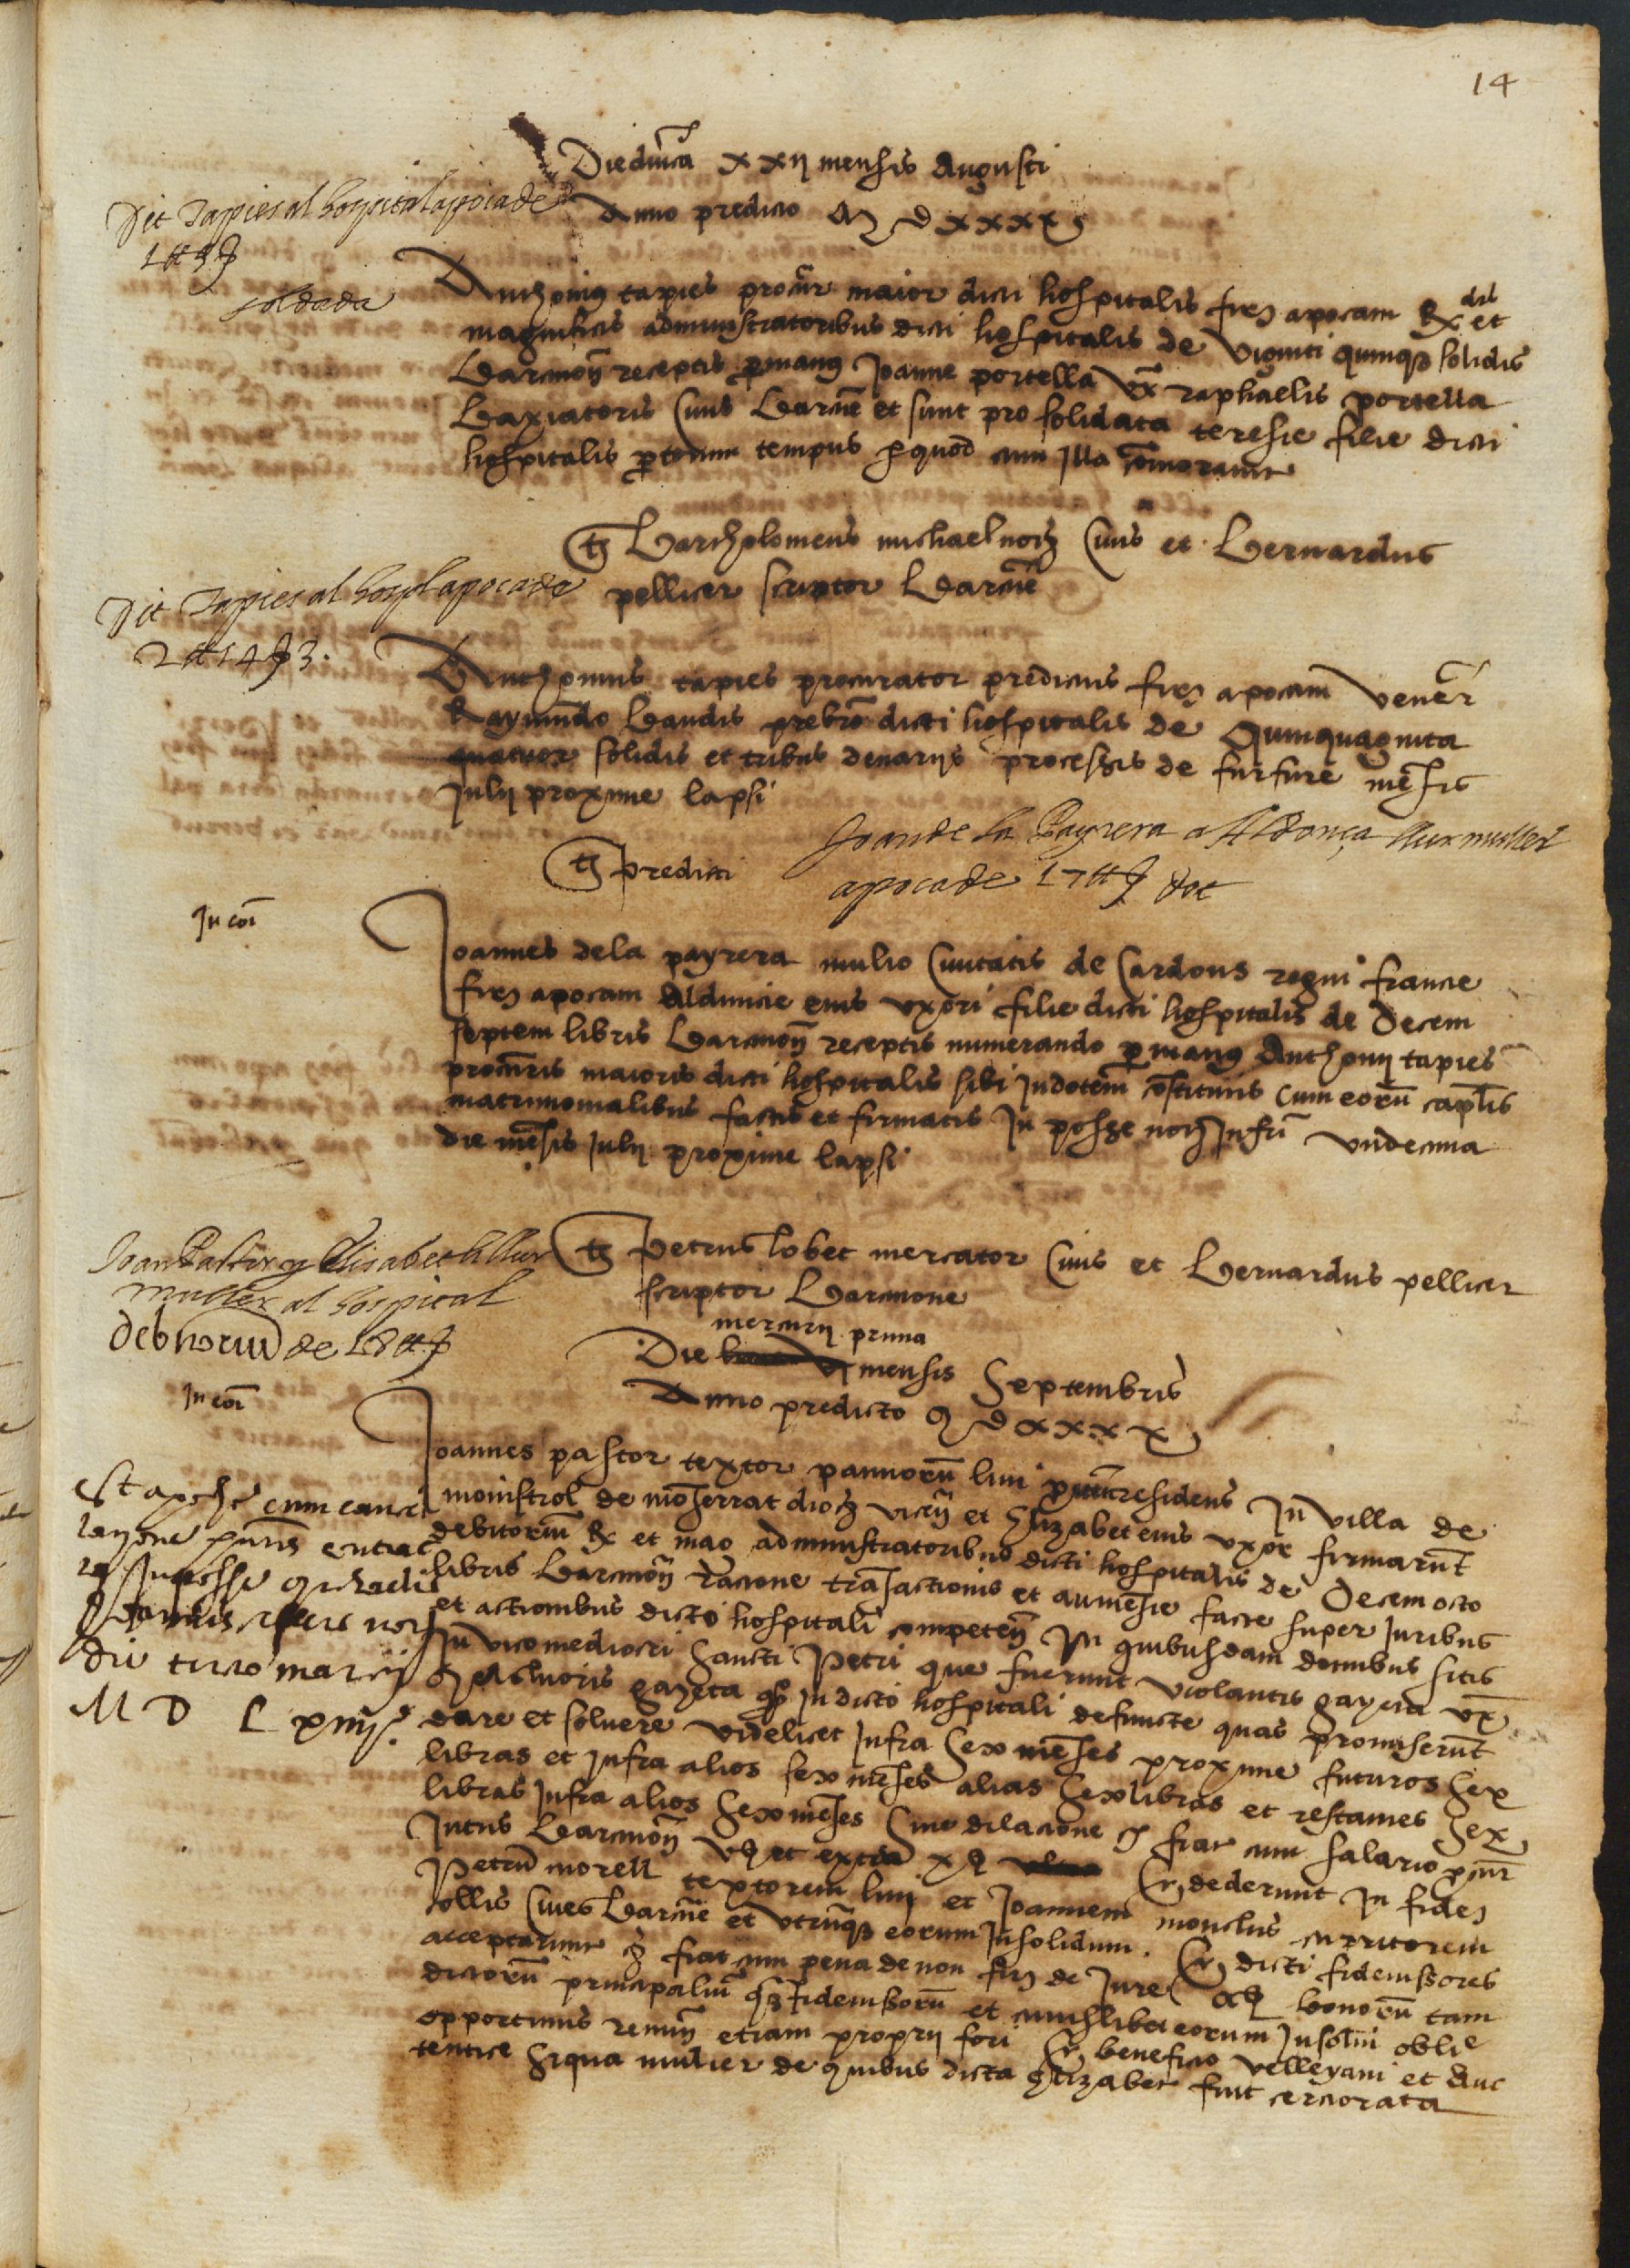 14
Die dmca xxij mensis Augusti
Anno predicto M D xxxx
Dit Tapies al hospital apoca de
1 ℔ 5 ß
soldada
Anthonius tapies procur maior dicti hospitalis firm apocam Rx dis et
magnificis administratoribus dicti hospitalis de viginti quinque solidis
Barcinon receptis per manus Joanne portella ux raphaelis portella
baxiatoris civis Barcine et sunt pro solidata teresie filie dicti
hospitalis per totum tempus per quod cum illa comoravit
ts Bartholomeus michael nots civis et Bernardus
pellicer scriptor Barcine
Dit Tapies al hospl apoca de
2 ℔ 14 ß 3.
Anthonius tapies procurator predictus firm apocam vener
Raymundo Baudis prebro dicti hospitalis de Quinquaginta
quatuor solidis et tribus denariis processis de furfure mensis
Julij proxime lapsi
ts predicti
Joan de la Payrera a Aldonça llur muller
apoca de 17 ℔ ß dot
In coi
Joannes dela payrera mulio Civitatis de Cardous regni francie
firm apocam Alduncie eius uxori filie dicti hospitalis de Decem
septem libris Barcinon receptis numerando per manus Anthonij tapies
procuris maioris dicti hospitalis sibi in dotem constitutis cum eorum caplis
matrimonialibus factis et firmatis In posse nots infri undecima
die mensis Julij proxime lapsi
ts Petrus lobet mercator civis et Bernardus pellicer
scriptor Barcinone
Joan Pastor y Elisabet llur
muller al hospital
debitoriu de 18 ℔ ß
mercurij prima
Die mensis Septembris
Anno predicto M D xxxx
In coi
Joannes pastor textor pannorum lini pntir residens In villa de
monistrol de monserrat dioc vicen et Elizabet eius uxor firmarunt
debitorium Rx et mao administratoribus dicti hospitalis de Decem octo
libris Barcinon racione transactionis et avinensie facte super Juribus
et actionibus dicto hospitali competen In quibusdam domibus sitis
In vico mediocri Sancti Petri que fuerunt violantis gazeta ux
gazeta In dicto hospitali defuncte quas promiserunt
dare et solvere videlicet Infra Sex menses proxime futuros Sex
libras et Infra alios sex menses alias Sex libras et restantes Sex
libras Infra alios Sex menses Sine dilacione et fiat cum salario pcur
Intus Barcinon vs et extra xs Et dederunt In fidem
Petrum morell textorem lini et Joannem monclus cupritorem
ollis Cives Barcine et utrumque eorum Insolidum. Et dicti fideiussores
acceptarunt et fiat cum pena de non firm de Jure obl bonorum tam
dictorum principalium quam fideiussorum et cuiuslibet eorum Insolm oblie
opportunis renun etiam proprij fori Et beneficio velleyani et Auc
tentice Siqua mulier de quibus dicta Elizabet fuit cerciorata
Est apocha cum cancel
lazione
In posse michaelis
nots
die tercio marcij
M D L xiiij